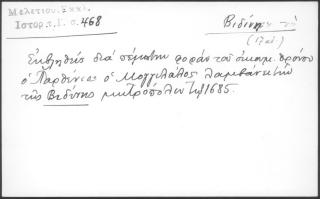 Μελετίου. Ἐκκλ.
Ἱστορ. τ. Ι. σ. 468
Βιδύνης
(17 αἰ.)
Ἐκβληθεὶς διὰ πέμπτην φορὰν τοῦ οἰκουμ. θρόνου
ὁ Παρθένιος ὁ Μογγιλάλος λαμβάνει τὴν
τῆς Βιδύνης μητρόπολιν τῷ 1685.